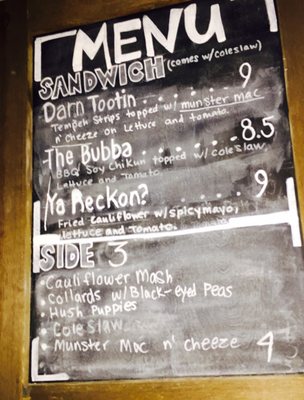 MENU
SANDWICH (comes w/coleslaw)
Darn Tootin . . . . . 9
Tempeh Strips topped w/ munster mac
n' cheeze on lettuce and tomato.
The Bubba . . . . . . 8.5
BBQ Soy Chikun topped w/ coleslaw,
Lettuce and Tomato
Ya Reckon? 9
Fried Cauliflower w/spicy mayo,
lettuce and tomato.
SIDE 3
• Cauliflower Mash
• Collards w/ Black-eyed Peas
• Hush Puppies
• Cole Slaw
• Munster Mac n' cheeze 4